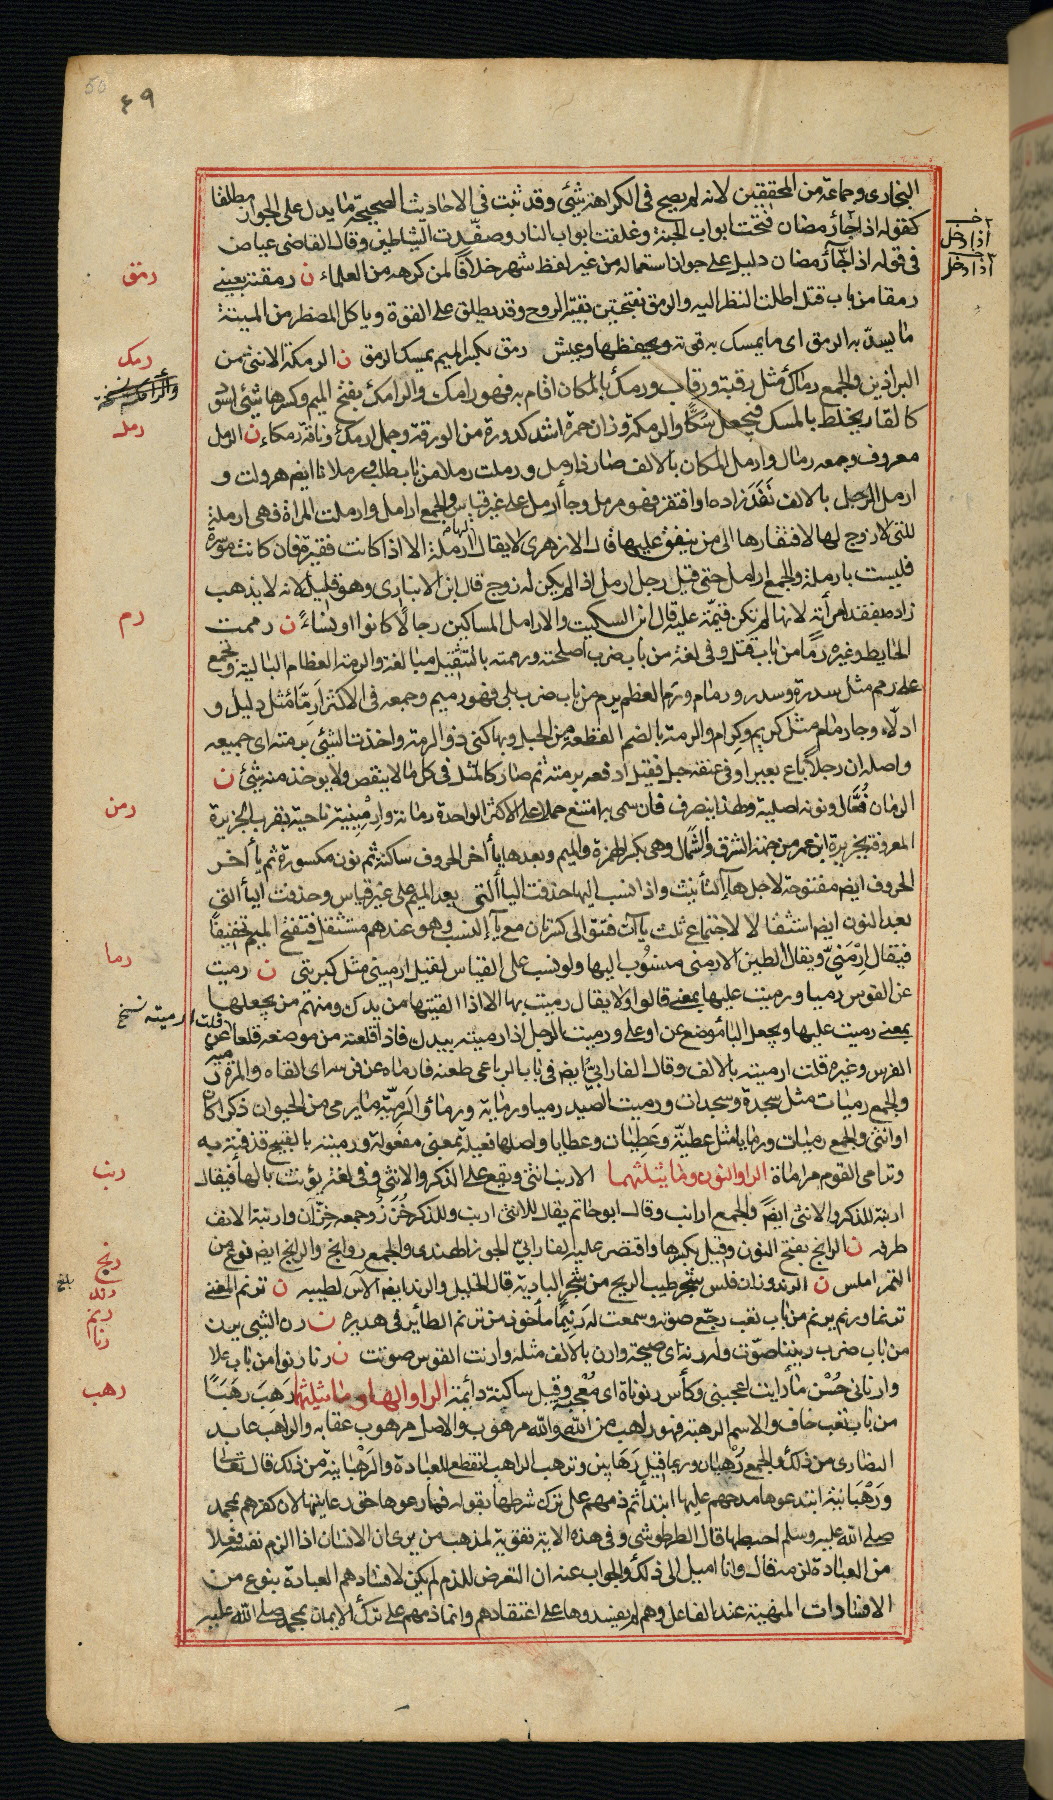 50
٤٩
البخاري وجماعة من المحققين لانه لم يصح في الكراهة شيئ وقد ثبت في الاحاديث الصحيحة ما يدل على الجواز مطلقا
كقوله اذا جآء رمضان فتحت ابواب الجنة وغلقت ابواب النار وصفدت الشياطين وقال القاضي عياض
اذا دخل
اذا دخل
في قوله اذا جآء رمضان دليل على جواز استعماله من غير لفظ شهر خلافا لمن كرهه من العلماء ن رمقته بعينى
رمق
رمقا من باب قتل اطلت النظر اليه والرمق بفتحتين بقية الروح وقد يطلق على القوة وياكل المضطر من الميتة
ما يسد به الرمق اى ما يمسك به قوته ويحفظها وعيش رمق بكسر الميم يمسك الرمق ن الرمكة الانثى من
رمك
البراذين والجمع رماك مثل رقبة ورقاب ورمك بالمكان اقام به فهو رامك والرامك بفتح الميم وكسرها شيئ اسود
كالقار يخلط بالمسك فيجعل سكا والرمكة وزان حمرة اشد كدورة من الورقة وجمل ارمك وناقة رمكاء ن الرمل
رمل
معروف وجمعه رمال وارمل المكان بالالف صار ذا رمل ورملت رملا من باب طلب ورملانا ايض هرولت و
ارمل الرجل بالالف نفد زاده وافتقر فهو مرمل وجاء ارمل على غير قياس والجمع ارامل وارملت المراة فهى ارملة
للتى لا زوج لها لافتقارها الى من ينفق عليها قال الازهرى لا يقال لها ارملة الا اذا كانت فقيرة فان كانت موسرة
فليست بارملة والجمع ارامل حتى قيل رجل ارمل اذا لم يكن له زوج قال ابن الانبارى وهو قليل لانه لا يذهب
زاده بفقد امرأته لانها لم تكن قيمة عليه قال ابن السكيت والارامل المساكين رجالا كانوا او نساء ن رممت
رم
الحايط وغيره رما من باب قتل وفى لغة من باب ضرب اصلحته ورممته بالتثقيل مبالغة والرمة العظام البالية وتجمع
على رمم مثل سدرة وسدر ورمام ورم العظم يرم من باب ضرب بلى فهو رميم وجمعه فى الاكثر ارماء مثل دليل و
ادلاء وجاء رمام مثل كريم وكرام والرمة بالضم القطعة من الحبل وبها كنى ذو الرمة واخذت الشيئ برمته اى جميعه
واصله ان رجلا باع بعيرا وفى عنقه حبل فقيل ادفعه برمته ثم صار كالمثل فى كل ما لا ينقص ولا يوخذ منه شيئ ن
الرمان فعال ونونه اصلية ولهذا ينصرف فان سمى به امتنع حملا على الاكثر الواحدة رمانة وارمينية ناحية بقرب الجزيرة
رمن
المعروفة بجزيرة ابن عمر من جهة الشرق والشمال وهى بكسر الهمزة والميم وبعدها يا آخر الحروف ساكنة ثم نون مكسورة ثم يا آخر
الحروف ايض مفتوحة لاجل هآء التأنيث واذا نسب اليها حذفت اليا التى بعد الميم على غير قياس وحذفت اليا التى
بعد النون ايض استثقالا لاجتماع ثلث ياآت فتتوالى كسرتان مع يآء النسب وهو عندهم مستثقل فتفتح الميم تخفيفا
فيقال ارمني ويقال الطين الارمنى منسوب اليها ولو نسب على القياس لقيل ارمينى مثل كبريتى ن رميت
رما
عن القوس رميا ورميت عليها بمعنى قالوا ولا يقال رميت بها الا اذا القيتها من يدك ومنهم من يجعلها
بمعنى رميت عليها ويجعل البا موضع عن او على ورميت الرجل اذا رميته بيدك فاذا قلعته من موضعه قلعا عن
قلت ارميته نسخ
الفرس وغيره قلت ارميته بالالف وقال الفارابى ايض فى باب الرباعى طعنه فارماه عن فرسه اى القاه والمرة رمية
والجمع رميات مثل سجدة وسجدات ورميت الصيد رميا ورماية ورماء والرمية ما يرمى من الحيوان ذكرا كان
او انثى والجمع رميات ورمايا مثل عطية وعطيات وعطايا واصلها فعيلة بمعنى مفعولة ورميته بالقبيح قذفته به
وترامى القوم مراماة الراء والنون وما يثلثهما الارنب انثى ويقع على الذكر والانثى وفى لغة يؤنث بالها فيقال
رنب
ارنبة للذكر والانثى ايض والجمع ارانب وقال ابو حاتم يقال للانثى ارنب وللذكر خزز وجمعه خزان وارنبة الانف
طرفه ن الرانج بفتح النون وقيل بكسرها واقتصر عليه الفارابى الجوز الهندى والجمع روانج والرانج ايض نوع من
رنج
التمر املس ن الرند وزان فلس شجر طيب الريح من شجر البادية قال الخليل والرند ايض الآس لطيبه ن ترنم المغنى
رند
بلغ
ترنما ورنم يرنم من باب تعب رجع صوته وسمعت له رنيما ماخوذ من ترنم الطائر فى هديره ن رن الشيئ يرن
رنم
من باب ضرب رنينا صوت وله رنة اى صيحة وارن بالالف مثله وارنت القوس صوتت ن رنا رنوا من باب علا
رنا
وارنانى حسن ما رأيت اعجبنى وكأس رنوناة اى معجبة وقيل ساكنة دائمة الراء والهاء وما يثلثهما رهب رهبا
رهب
من باب تعب خاف والاسم الرهبة فهو راهب من الله والله مرهوب والاصل مرهوب عقابه والراهب عابد
النصارى من ذلك والجمع رهبان وربما قيل رهابين وترهب الراهب انقطع للعبادة والرهبانية من ذلك قال تعالى
ورهبانية ابتدعوها مدحهم عليها ابتدا ثم ذمهم على ترك شرطها بقوله فما رعوها حق رعايتها لان كفرهم بمحمد
صلى الله عليه وسلم احبطها قال الطرطوشى وفى هذه الاية تقوية لمذهب من يرى ان الانسان اذا الزم نفسه فعلا
من العبادة لزمه قال وانا اميل الى ذلك والجواب عنه ان التعرض للذم لم يكن لافسادهم العبادة بنوع من
الافسادات المنهية عند الفاعل وهم لم يفسدوها على اعتقادهم وانما ذمهم على ترك الايمان بمحمد صلى الله عليه